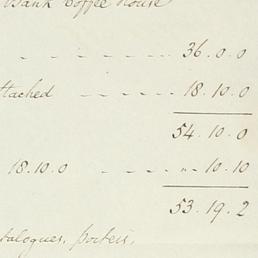 Bank Coffee House
- - - - - - 36.0.0
ttached - - - - - 18.10.0
54.10.0
18.10.0 - - - - - 10.10
53.19.2
talogues, porters,